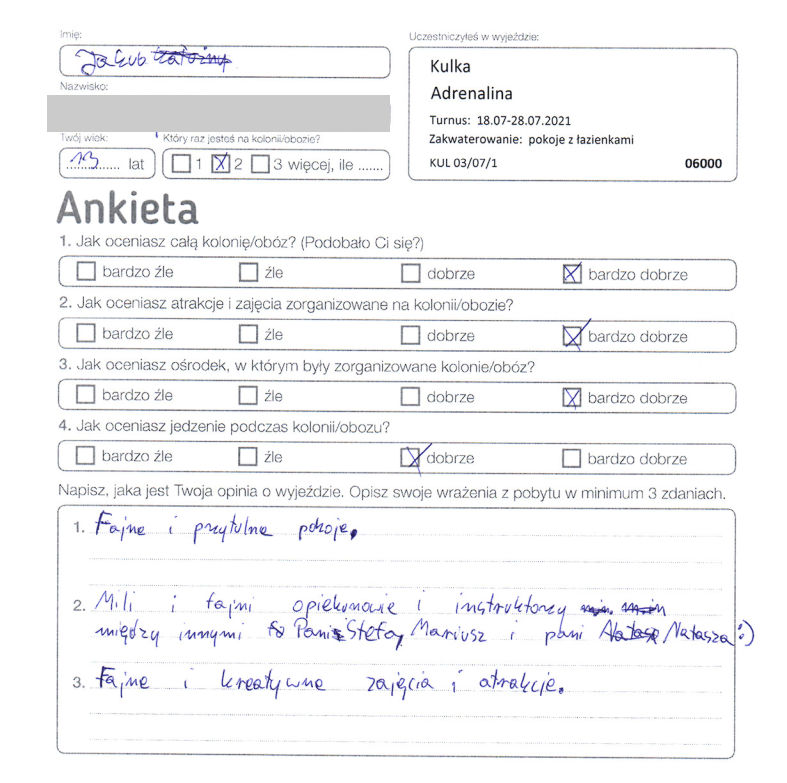 Imię:
Jakub
Nazwisko:
Twój wiek:
13 lat
Który raz jesteś na kolonii/obozie?
1 2 3 więcej, ile .......
Uczestniczyłeś w wyjeździe:
Kulka
Adrenalina
Turnus: 18.07-28.07.2021
Zakwaterowanie: pokoje z łazienkami
KUL 03/07/1 06000
Ankieta
1. Jak oceniasz całą kolonię/obóz? (Podobało Ci się?)
bardzo źle źle dobrze bardzo dobrze
2. Jak oceniasz atrakcje i zajęcia zorganizowane na kolonii/obozie?
bardzo źle źle dobrze bardzo dobrze
3. Jak oceniasz ośrodek, w którym były zorganizowane kolonie/obóz?
bardzo źle źle dobrze bardzo dobrze
4. Jak oceniasz jedzenie podczas kolonii/obozu?
bardzo źle źle dobrze bardzo dobrze
Napisz, jaka jest Twoja opinia o wyjeździe. Opisz swoje wrażenia z pobytu w minimum 3 zdaniach.
1. Fajne i przytulne pokoje.
2. Mili i fajni opiekunowie i instruktorzy
między innymi Pani Stefa, Mariusz i pani Natasza :)
3. Fajne i kreatywne zajęcia i atrakcje.